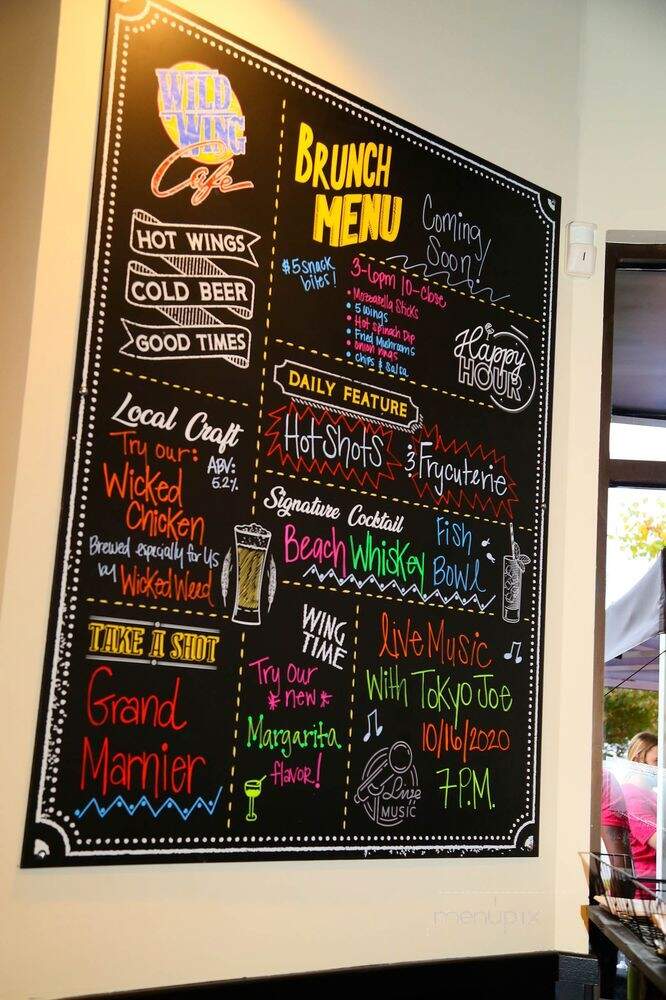 WILD
WING
Cafe
HOT WINGS
COLD BEER
GOOD TIMES
BRUNCH
MENU
Coming
Soon!
$5 snack
bites!
3-6pm 10-close
• Mozzarella Sticks
• 5 wings
• Hot spinach Dip
• Fried Mushrooms
• onion rings
• chips & salsa
Happy
HOUR
DAILY FEATURE
Hot Shots & Frycuterie
Local Craft
Try our:
ABV:
5.2%
Wicked
Chicken
Brewed especially for us
by Wicked Weed
Signature Cocktail
Beach Whiskey Fish
Bowl
TAKE A SHOT
Grand
Marnier
WING
TIME
Try our
*new*
Margarita
flavor!
Live Music
With Tokyo Joe
10/16/2020
7 P.M.
Live
MUSIC
menupix